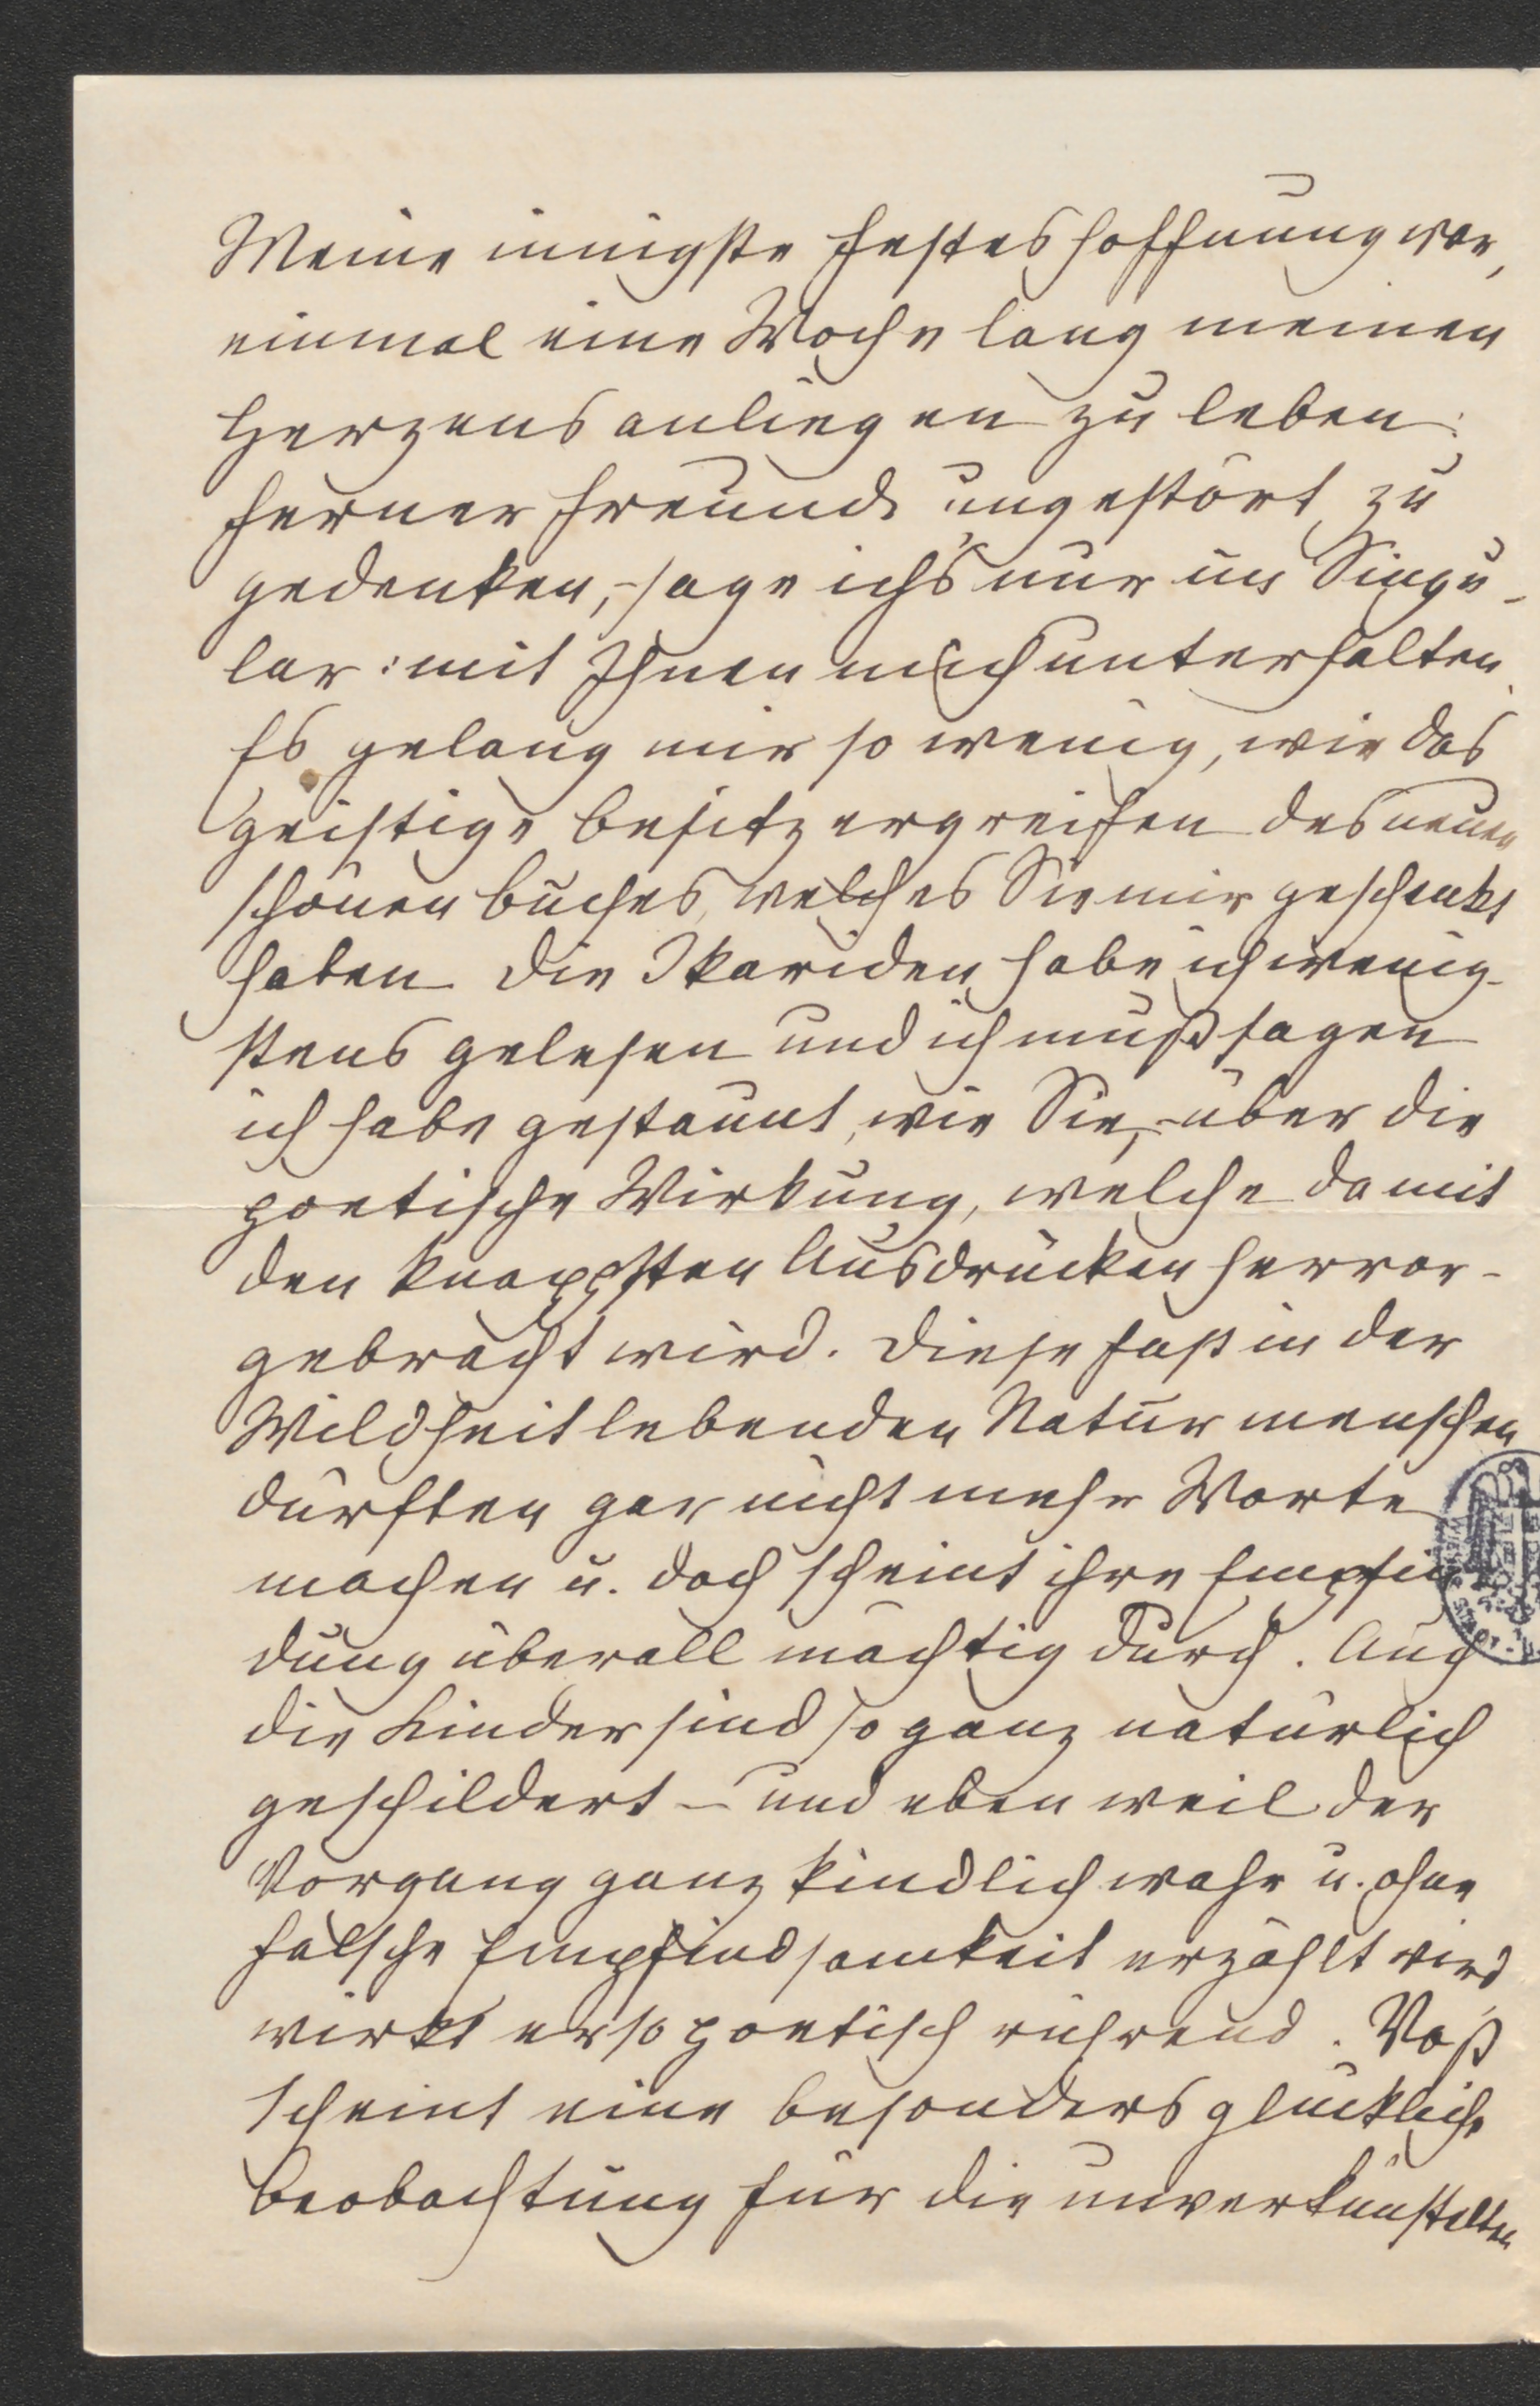 Meine innigste Festeshoffnung war,
einmal eine Woche lang meinen
Herzensanliegen zu leben:
ferner Freunde ungestört zu
gedenken, – sage ich's nur im Singu-
lar: mit Ihnen mich unterhalten.
Es gelang mir so wenig, wie das
geistige Besitzergreifen des neuen
schönen Buches, welches Sie mir geschenkt
haben. Die Ikariden habe ich wenig-
stens gelesen und ich muß sagen
ich habe gestaunt, wie Sie, – über die
poetische Wirkung, welche da mit
den knappsten Ausdrücken hervor-
gebracht wird. Diese fast in der
Wildheit lebenden Naturmenschen
dürften gar nicht mehr Worte
machen u. doch scheint ihre Empfin
dung überall mächtig durch. Auch
die Kinder sind so ganz natürlich
geschildert – und eben weil der
Vorgang ganz kindlich wahr u. ohne
falsche Empfindsamkeit erzählt wird
wirkt er so poetisch rührend. Voß
scheint eine besonders glückliche
Beobachtung für die unverkünstelten